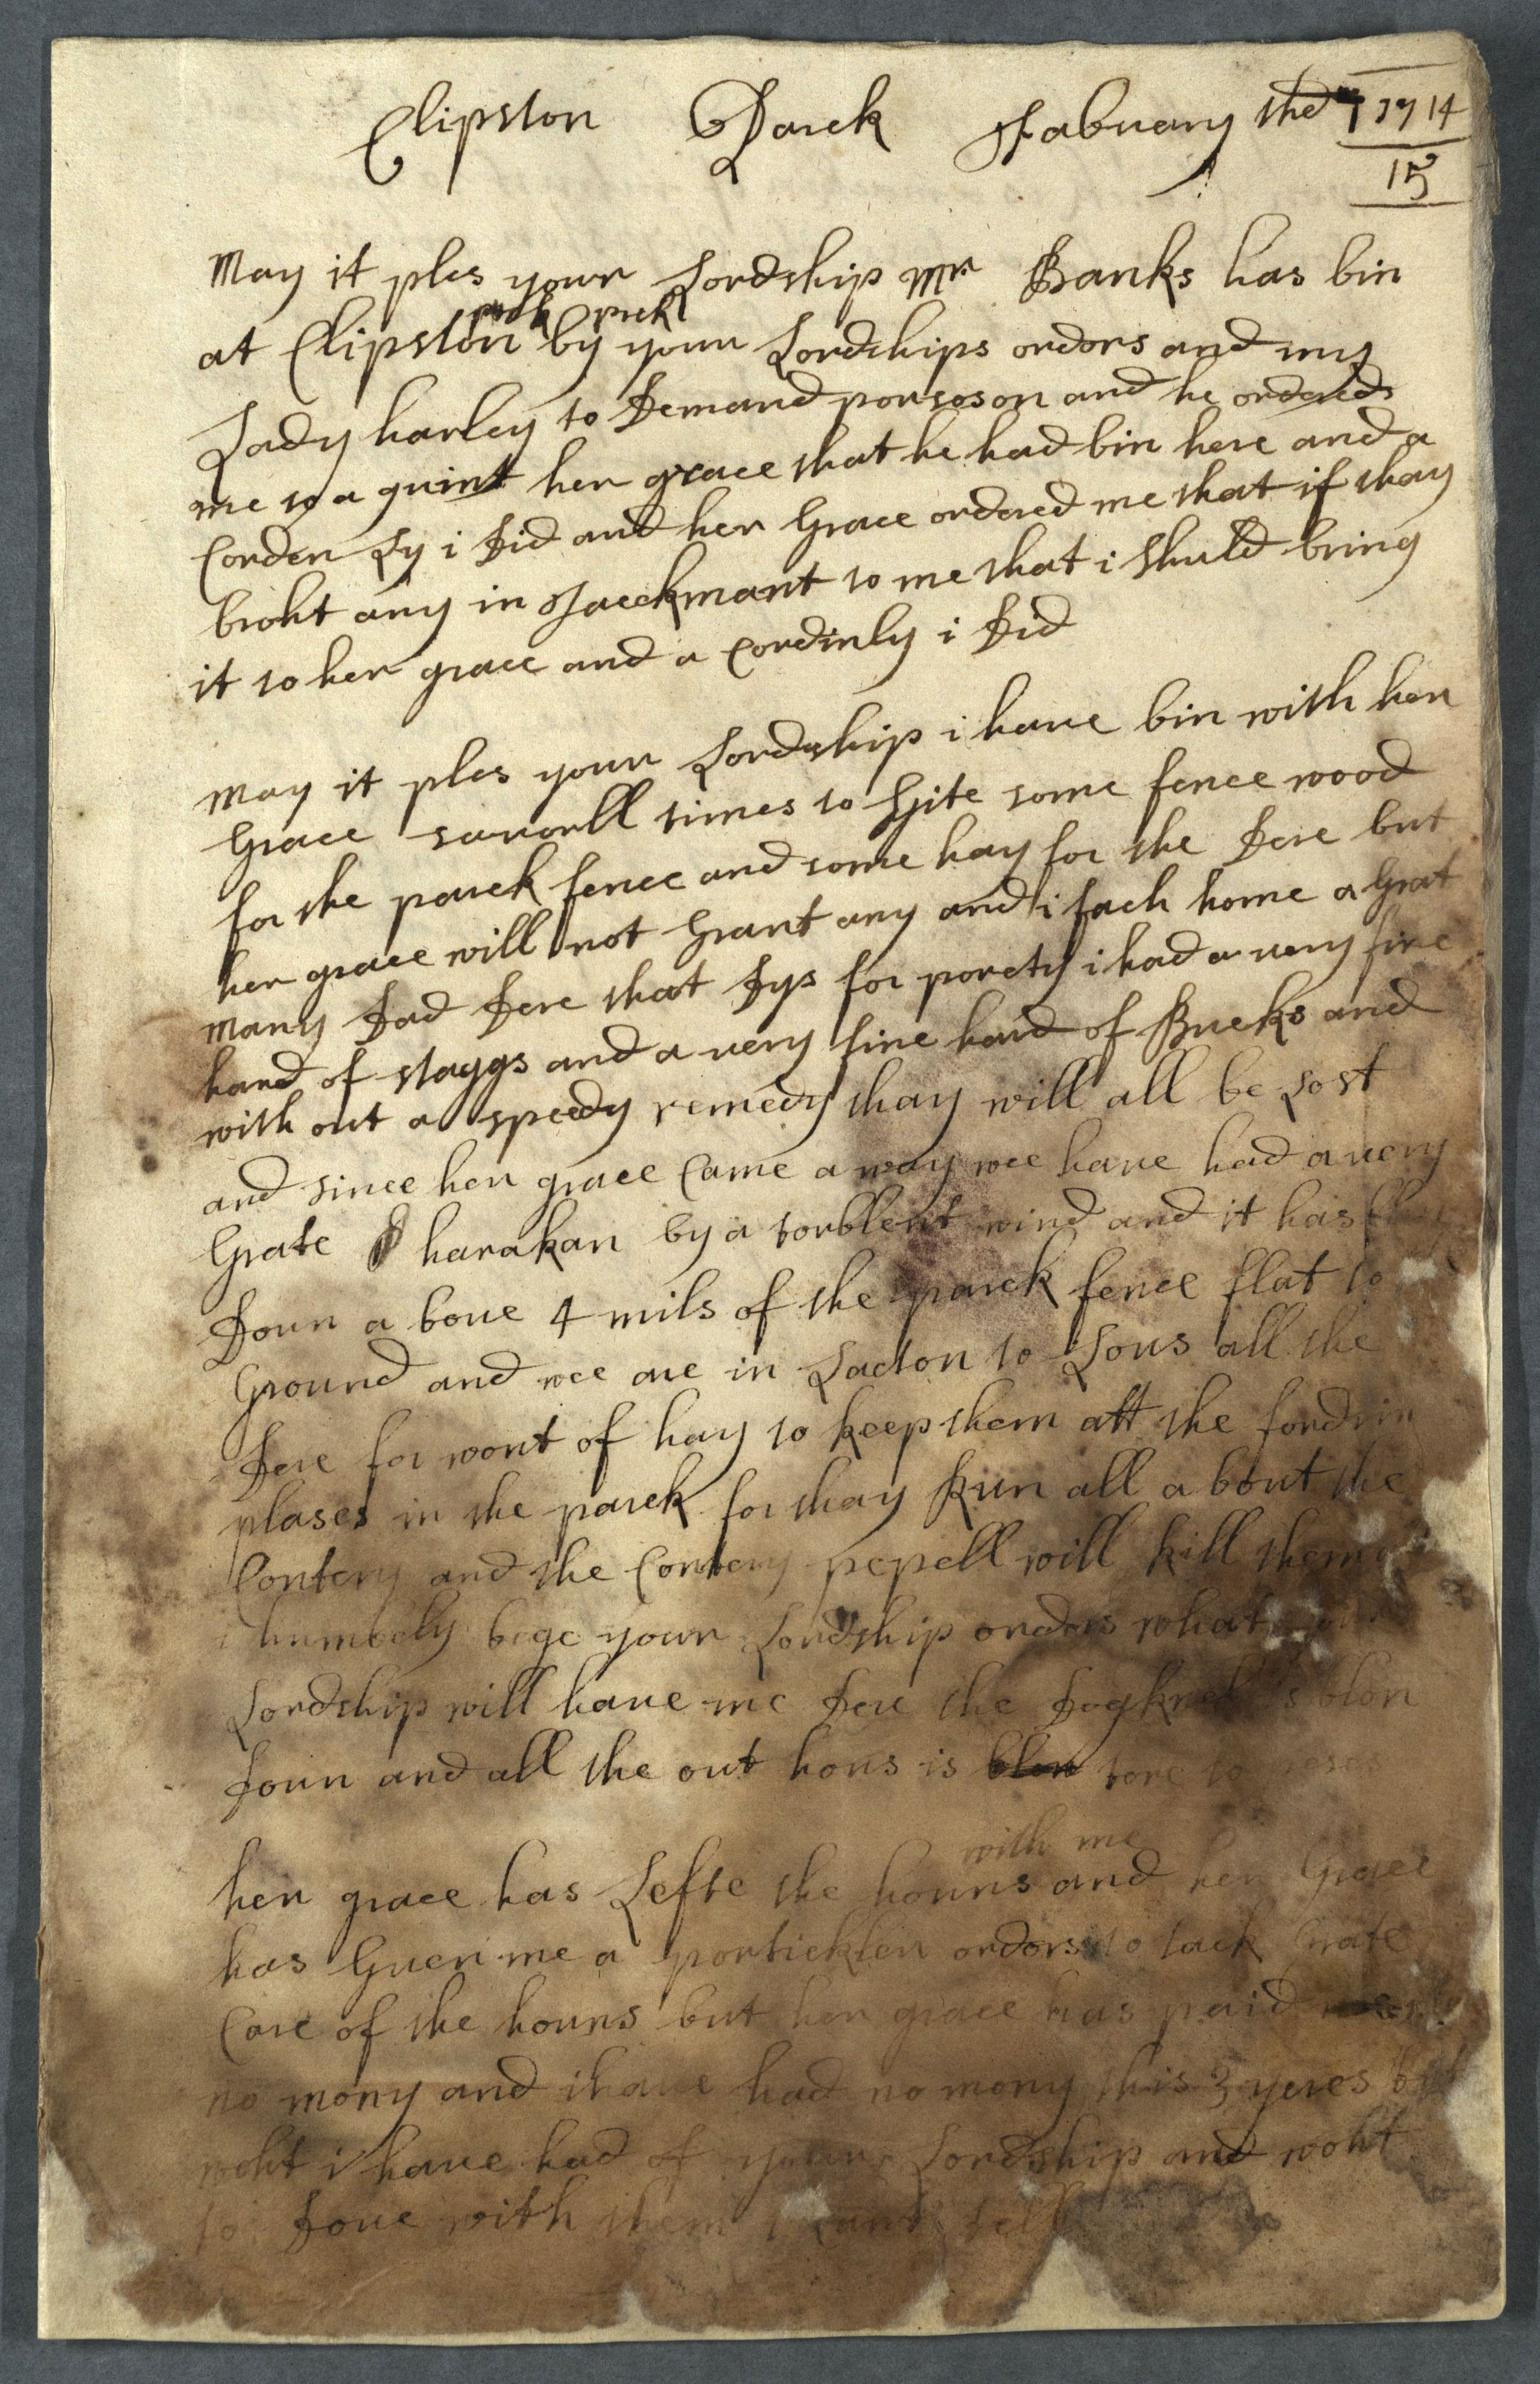 Clipston Parck Fabuary the 7 1714
15
May it ples your Lordship Mr Banks has bin
parck
at Clipston by your Lordships ordors and my
Lady harley to Demand porsoson and he ordered
me to a quint her grace that he had bin here and a
Corden Ly i Did and her Grace ordered me that if thay
broht any in Jaeckmant to me that i Shuld bring
it to her grace and a Cordinly i Did
May it ples your Lordship i haue bin with her
Grace suuorll times to Gite some fence wood
for the parck fence and some hay for the Dere but
her grace will not Grant any and i fach home a Grat
many Dad Dere that Dys for porety i had a uery fine
hard of staggs and a uery fine hard of Bucks and
with out a speedy remedy thay will all be Lost
and since her grace Came a way wee haue had a uery
Grate harakan by a torblent wind and it has
Doun a boue 4 mils of the parck fence flat to
Ground and wee are in Dacton to Lous all the
Dere for wont of hay to keep them att the fordrin
plases in the parck for thay Run all a bout the
Contery and the Contery pepell will kill them
i humbely bege your Lordship ordors what your
Lordship will haue me Doe the Dogknell is blon
Doun and all the out hous is blon tore to peses
with me
her grace has Lefte the houns and her Grace
has Guen me a portickler ordors to tack Grate
Care of the houns but her grace has paid
no mony and i haue had no mony this 3 yeres but
woht i haue had of your Lordship and woht
to Doue with them i cant tell